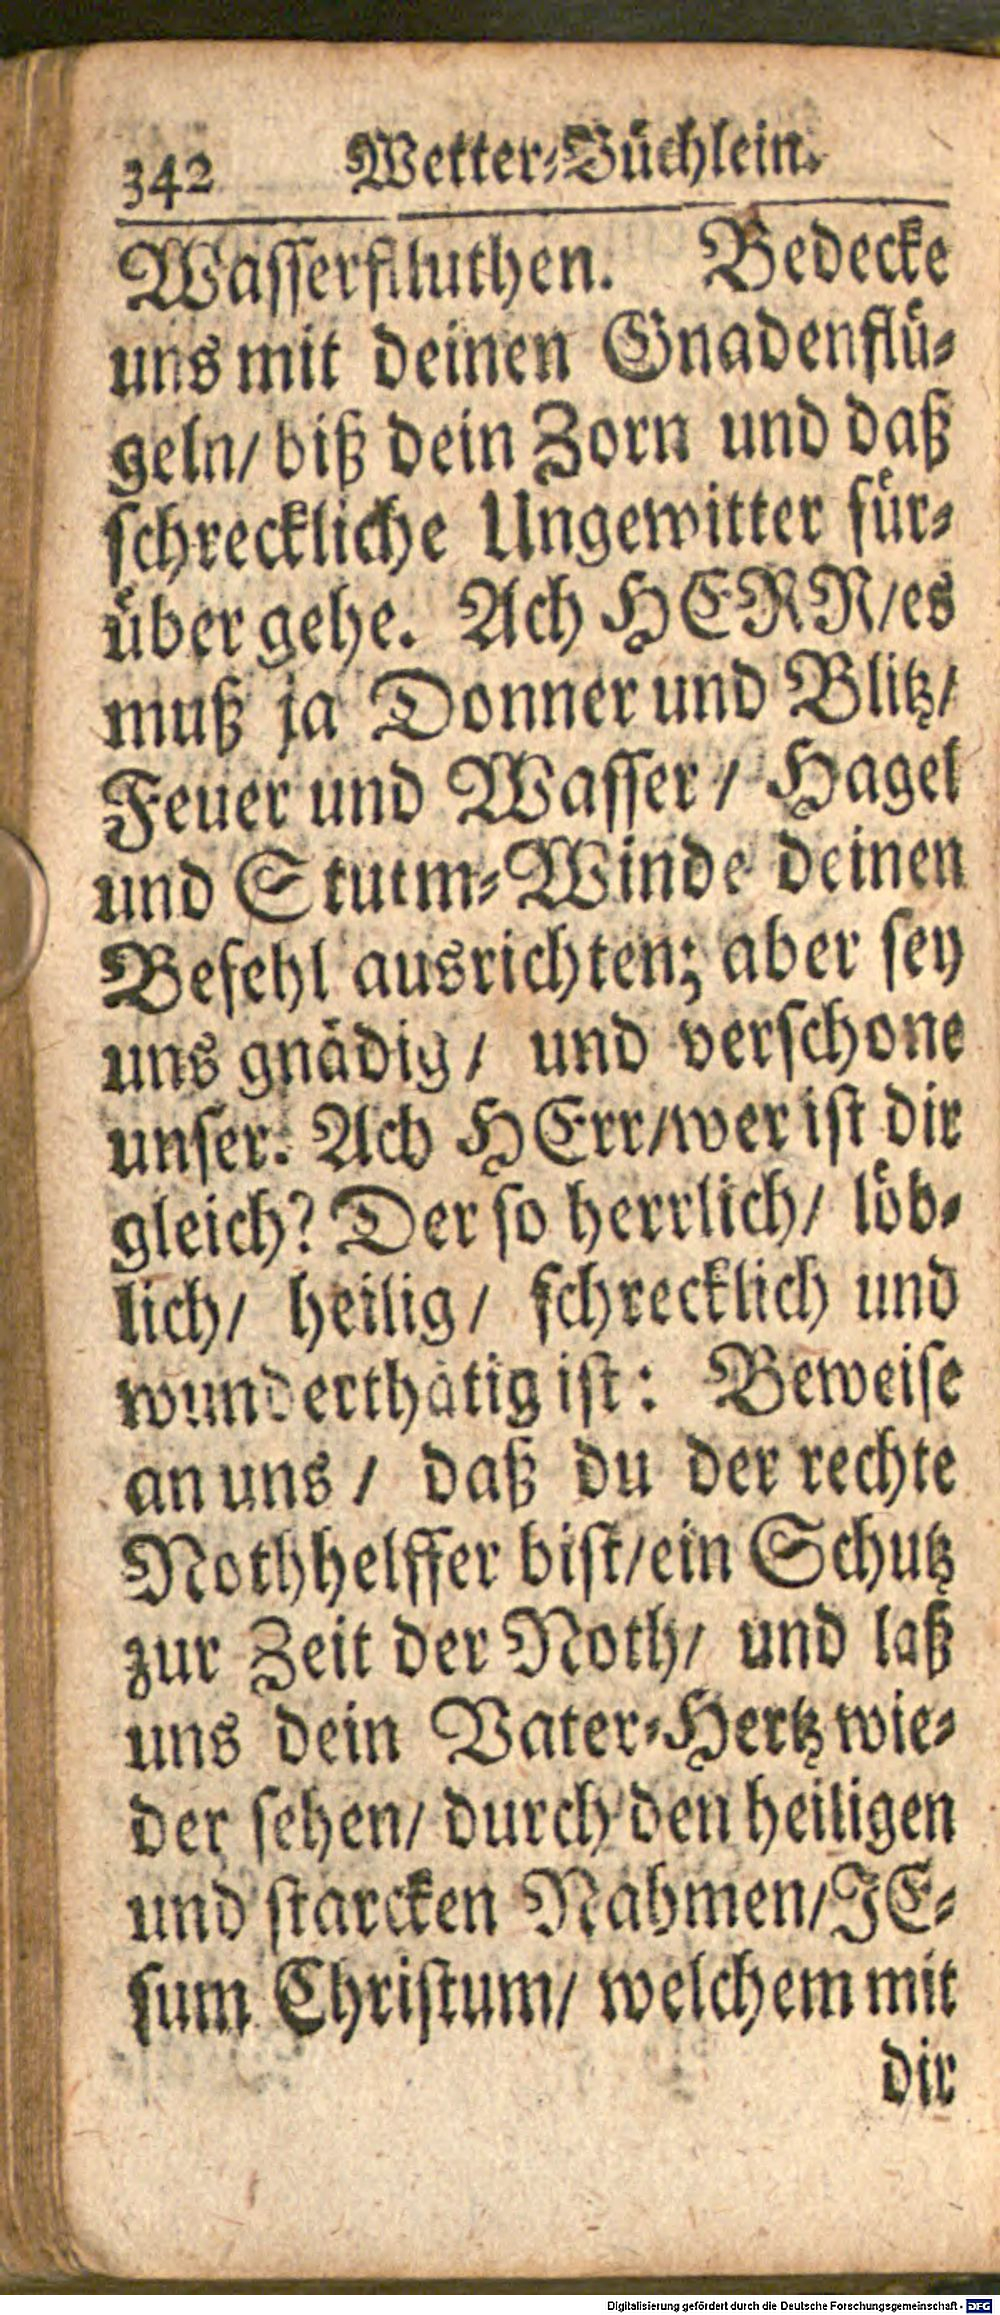 342 Wetter-Büchlein.
Wasserfluthen. Bedecke
uns mit deinen Gnadenflü-
geln/ biß dein Zorn und daß
schreckliche Ungewitter für-
über gehe. Ach HERR/es
muß ja Donner und Blitz/
Feuer und Wasser / Hagel
und Sturm-Winde deinen
Befehl ausrichten; aber sey
uns gnädig / und verschone
unser. Ach HErr/wer ist dir
gleich? Der so herrlich/ löb-
lich/ heilig / schrecklich und
wunderthätig ist: Beweise
an uns / daß du der rechte
Nothhelffer bist/ein Schutz
zur Zeit der Noth/ und laß
uns dein Vater-Hertz wie-
der sehen/ durch den heiligen
und starcken Nahmen/JE-
sum Christum/ welchem mit
dir
Digitalisierung gefördert durch die Deutsche Forschungsgemeinschaft - DFG